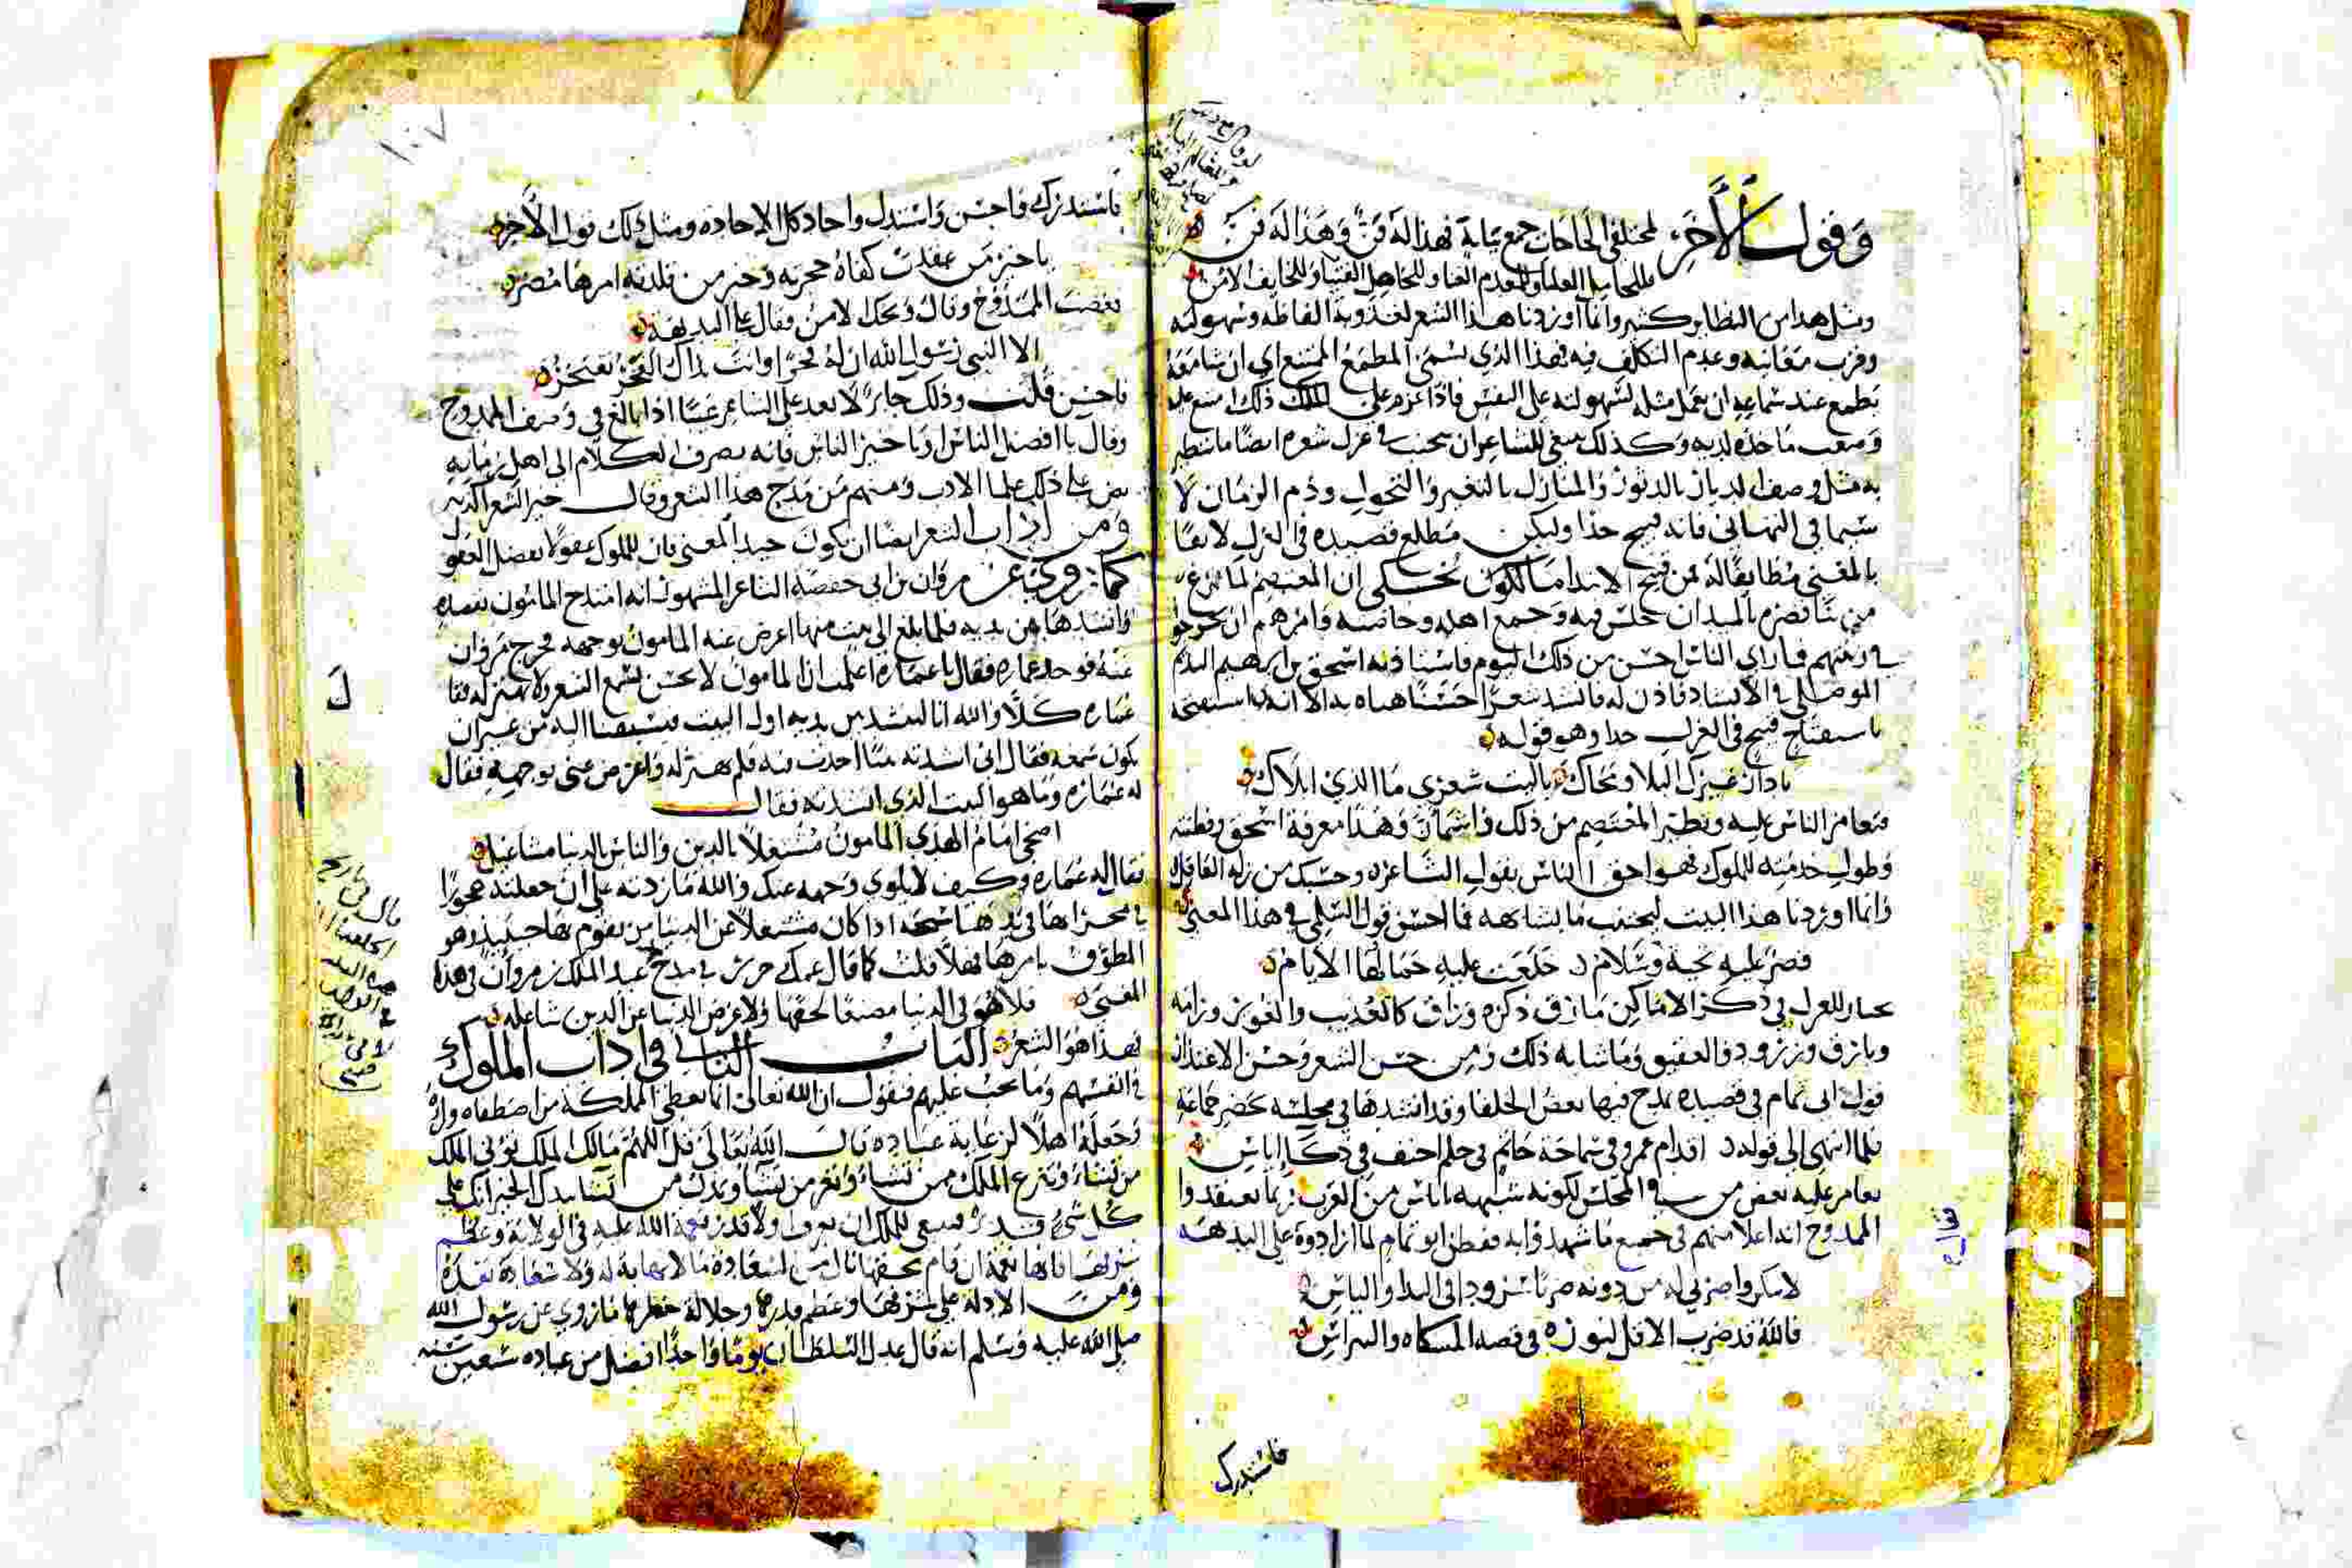 وقول الآخر لمختلفي الحاجات جمع ببابه فهذا له فن وهذا له فن
فللخامل العليا وللمعدم الغنا وللجاهل الفتيا وللخايف الامن
ومثل هذا من النظاير كثير وانما اوردنا هذا الشعر لعذوبة الفاظه وسهولته
وقرب معانيه وعدم التكلف فيه فهذا الذي يسمى المطمع الممتنع اي ان سامعه
يطمع عند سماعه ان يعمل مثله لسهولته على النفس فاذا عزم على ذلك امتنع عليه
وصعب ماخذه لديه وكذلك ينبغي للشاعر ان يجتنب في غزل شعره ايضا ما يتطير
به مثل وصف الديار بالدثور والمنازل بالتغير والتحول وذم الزمان لا
سيما في التهاني فانه قبيح جدا وليكن مطلع قصيده في الغزل لايقا
بالمعنى مطابقا له فمن قبيح الابتدا ما يحكى ان المعتصم لما فرغ
من بنا قصره بالميدان جلس فيه وجمع اهله وخاصته وامرهم ان يخرجوا
في زينتهم فما راي الناس احسن من ذلك اليوم فاستاذنه اسحق بن ابرهيم النديم
الموصلي في الانشاد فاذن له فانشد شعرا حسنا هناه به الا انه استفتحه
باستفتاح قبيح في الغزل جدا وهو قوله
يا دار غيرك البلا ومحاك يا ليت شعري ما الذي ابلاك
فتغامز الناس عليه وتطير المعتصم من ذلك واشمأز وهذا معرفة اسحق وفطنته
وطول خدمته للملوك فهو احق الناس بقول الشاعر وحسبك من زلة العاقل
وانما اوردنا هذا البيت ليجتنب ما يشابهه فما احسن قول السلمي في هذا المعنى
قصر عليه تحية وسلام خلعت عليه جمالها الايام
يختار للغزل في ذكر الاماكن ما رق ذكره وراق كالعذيب والغوير ورامه
وبارق وزرود والعقيق وما شابه ذلك ومن حسن الشعر وحسن الاعتذار
قول ابي تمام في قصيدة مدح فيها بعض الخلفا وقد انشدها في مجلسه بحضر جماعة
فلما انتهى الى قوله اقدام عمرو في سماحة حاتم في حلم احنف في ذكا اياس
تغامز عليه بعض من في المجلس لكونه شبهه باناس من العرب ربما يعتقدوا
الممدوح انه اعلا منهم في جميع ما شهدوا به ففطن ابو تمام لما ارادوه على البديهة
لا تنكروا ضربي له من دونه مثلا شرودا في الندا والباس
فالله قد ضرب الاقل لنوره في قصة المشكاه والنبراس
فاستدرك
فاستدرك فاحسن واستدل واجاد كل الاجاده ومثل ذلك قول الآخر
يا خير من عقدت كفاه حجزته وخير من قلدته امرها مضر
فغضب الممدوح وقال ويحك لا من فقال على البديهة
الا النبي رسول الله ان له فخرا وانت بذاك الفخر تفتخر
فاحسن قلت وذلك جايز لا يعد على الشاعر عيبا اذا بالغ في وصف الممدوح
وقال يا افضل الناس او يا خير الناس فانه يصرف الكلام الى اهل زمانه
نص على ذلك علما الادب ومنهم من مدح هذا الشعر وقال خير الشعر اكذبه
ومن اداب الشعر ايضا ان يكون جيد المعنى فان للملوك عقولا تفضل العقول
كما روي عن مروان بن ابي حفصة الشاعر المشهور انه امتدح المامون بقصيدة
وانشدها بين يديه فلما بلغ الى بيت منها اعرض عنه المامون بوجهه فخرج مروان
عنه فوجد عماره فقال يا عماره اعلمت ان المامون لا يحسن يسمع الشعر ولا يهتز له فقال
عماره كلا والله انا لننشد بين يديه اول البيت فيسبقنا اليه من غير ان
يكون سمعه فقال اني انشدته بيتا اجدت فيه فلم يهتز له واعرض عني بوجهه فقال
له عماره وما هو البيت الذي انشدته فقال
اضحى امام الهدى المامون مشتغلا بالدين والناس بالدنيا مشاغيل
فقال له عماره وكيف لا يلوي وجهه عنك والله ما زدته على ان جعلته عجوزا
في محرابها في يدها سبحة اذا كان مشتغلا عن الدنيا من يقوم بها حينيذ وهو
المطوق بامرها فهلا قلت كما قال عمك جرير في مدح عبد الملك بن مروان في هذا
المعنى فلا هو في الدنيا مضيعا لحقها ولا عرض الدنيا عن الدين شاغله
فهذا هو الشعر الباب الثاني في اداب الملوك
في انفسهم وما يجب عليهم فنقول ان الله تعالى انما يعطي المملكة من اصطفاه
وجعله اهلا لرعاية عباده قال الله تعالى قل اللهم مالك الملك توتي الملك
من تشاء وتنزع الملك ممن تشاء وتعز من تشا وتذل من تشا بيدك الخير انك على
كل شيء قدير فينبغي للملك ان يعرف اولا قدر نعمة الله عليه في الولاية وعظم
شرفها فانها نعمة ان قام بحقها نال من السعادة ما لا نهاية له ولا سعادة بعده
ومن الادلة على شرفها وعظم قدرها وجلالة خطرها ما روي عن رسول الله
صلى الله عليه وسلم انه قال عدل السلطان يوما واحدا افضل من عباده سبعين سنة